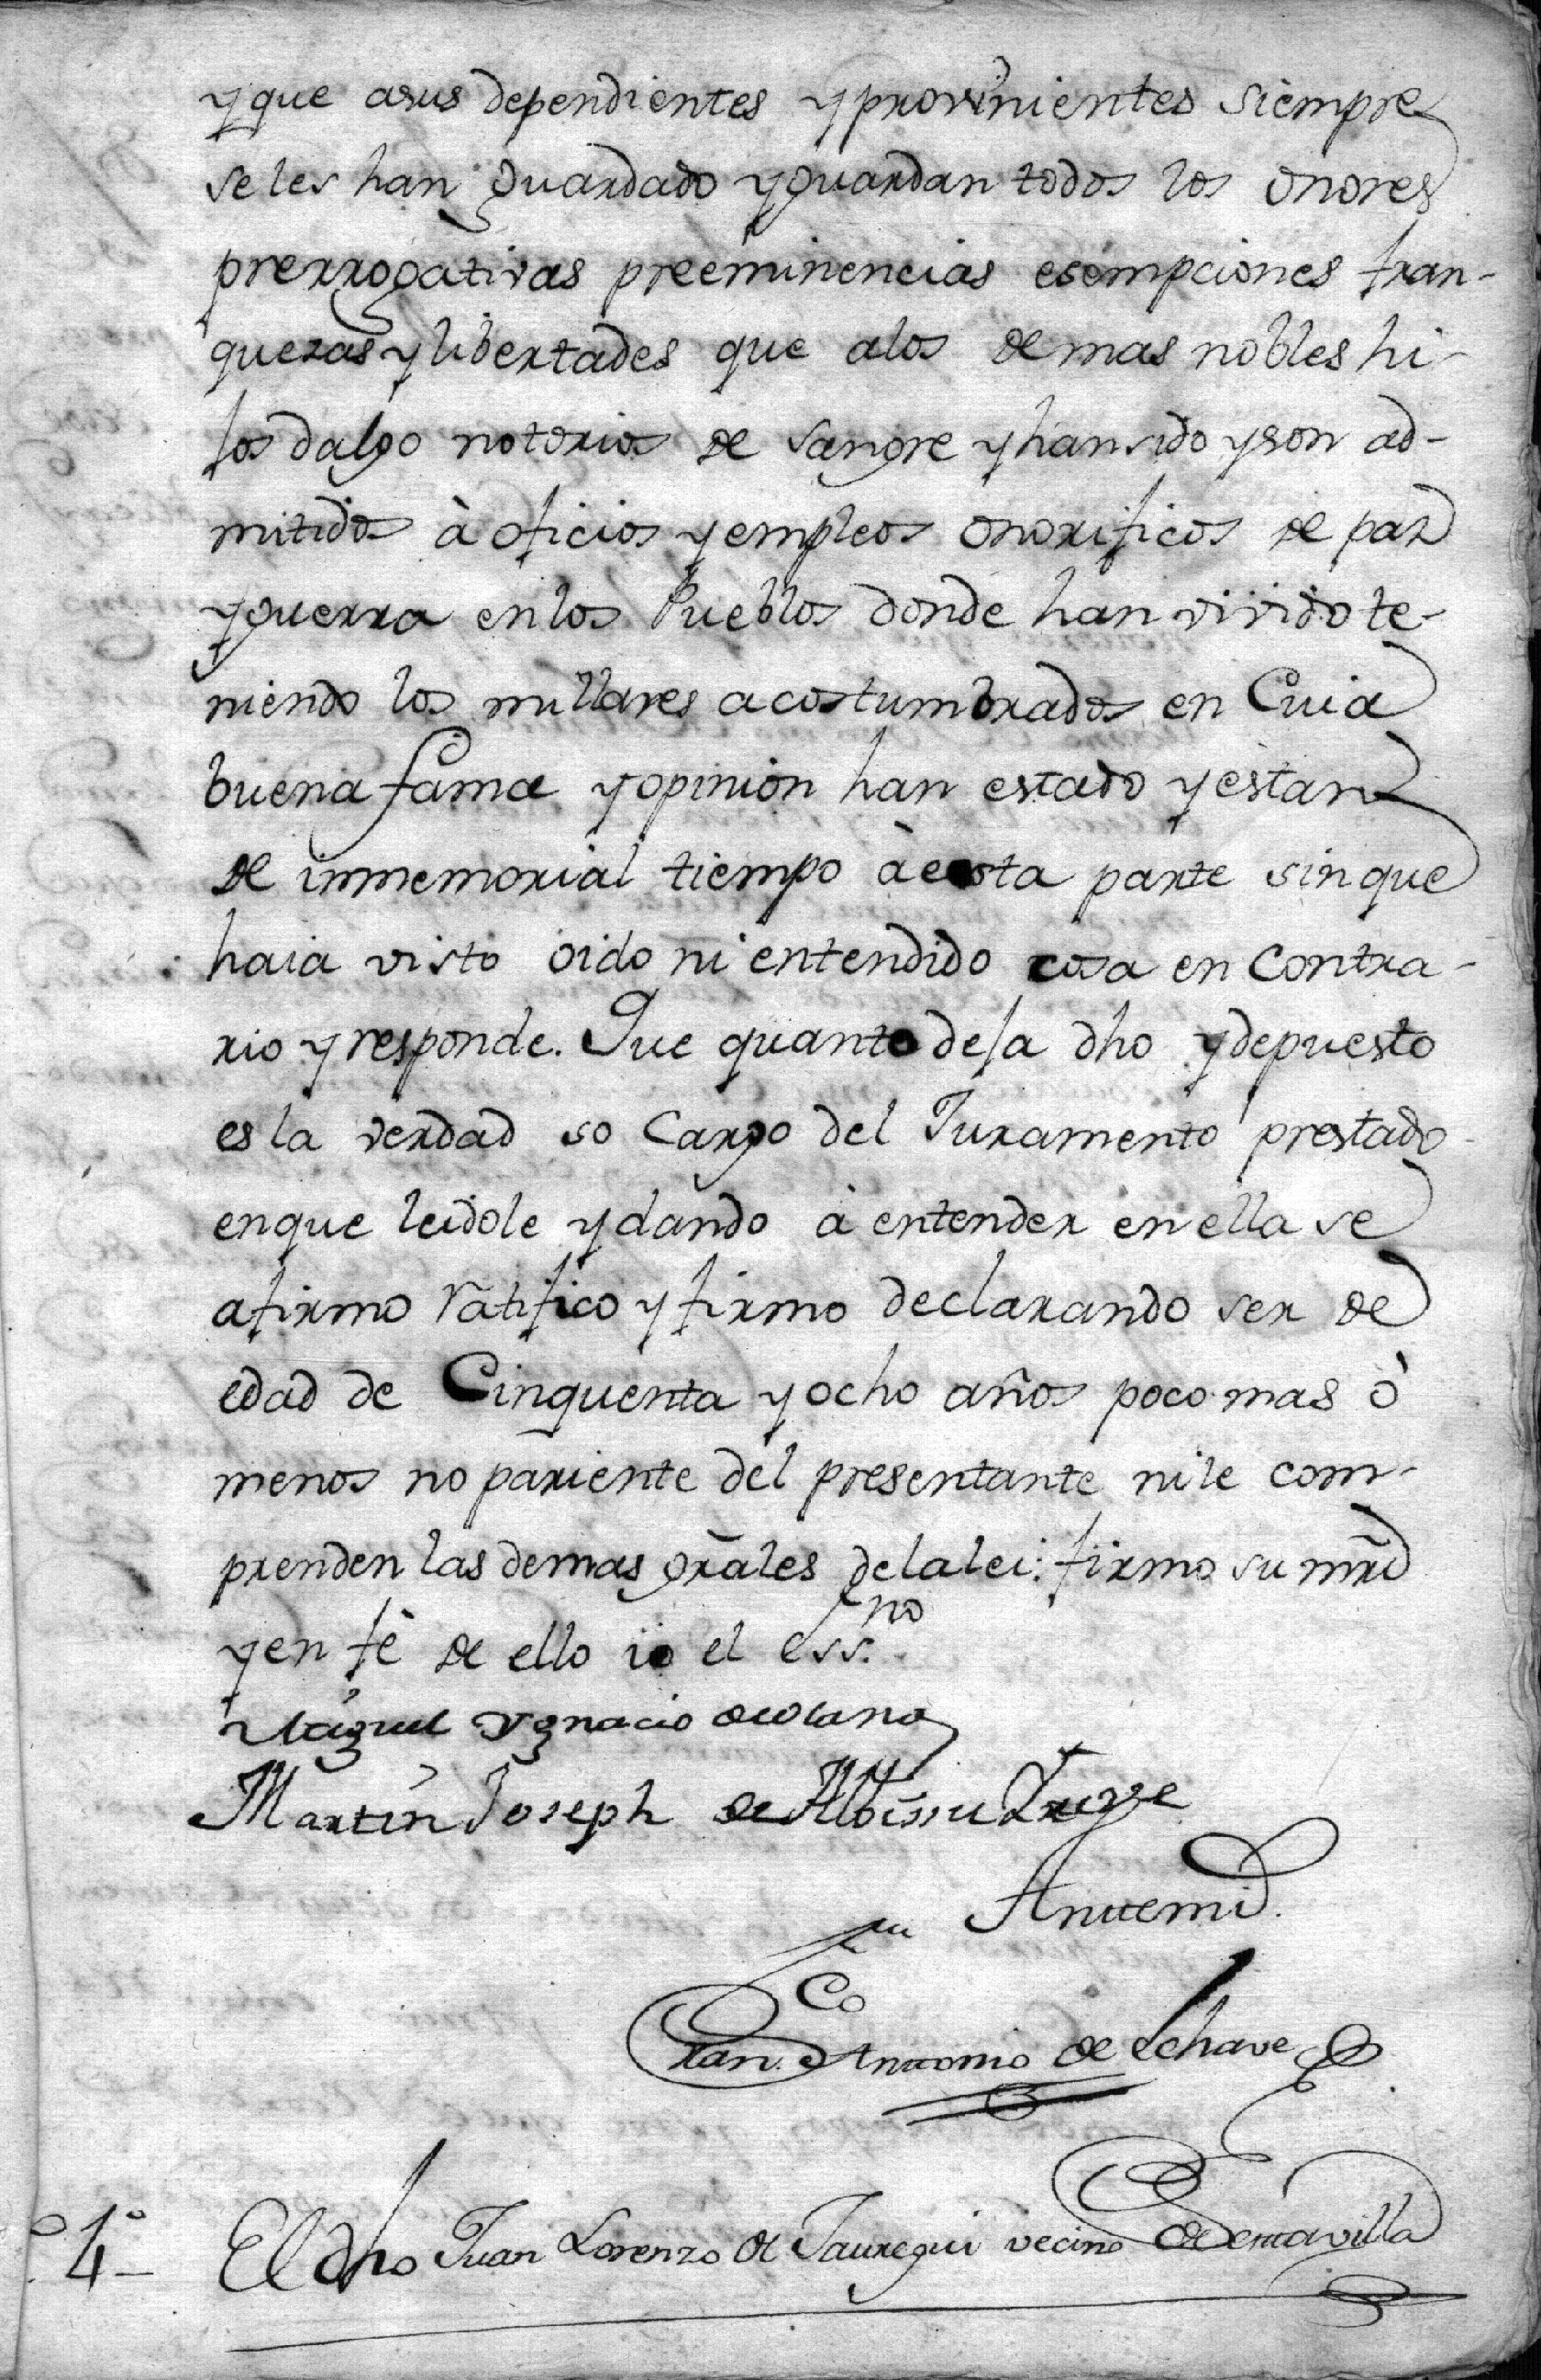 y que asus dependientes y provinientes siempre
se les han guardado y guardan todos los onores
prerrogativas preeminencias esempciones fran-
quezas y libertades que alos demas nobles hi-
jos dalgo notorios de sangre y han sido y son ad-
mitidos à oficios y empleos onorificos de paz
y guerra en los Pueblos donde han vivido te-
niendo los millares acostumbrados en Cuia
buena fama y opinion han estado y estan
de inmemorial tiempo à esta parte sin que
haia visto oido ni entendido cosa en contra-
rio y responde. Que quanto deja dho y depuesto
es la verdad so Cargo del Juramento prestado
en que leidole y dando à entender en ella se
afirmo ratifico y firmo declarando ser de
edad de Cinquenta y ocho años poco mas ò
menos no pariente del presentante ni le com-
prenden las demas grãles de la lei: firmo su mrd̃
y en fè de ello io el ess.no
Miguel Ygnacio de Olano
Martin Joseph de Albissu
Antemi
Fran.co Antonio de Echave
4.o El dho Juan Lorenzo de Jauregui vecino de esta villa